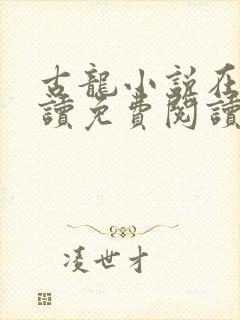 古龍小說在
讀免費閱讀
凌世才